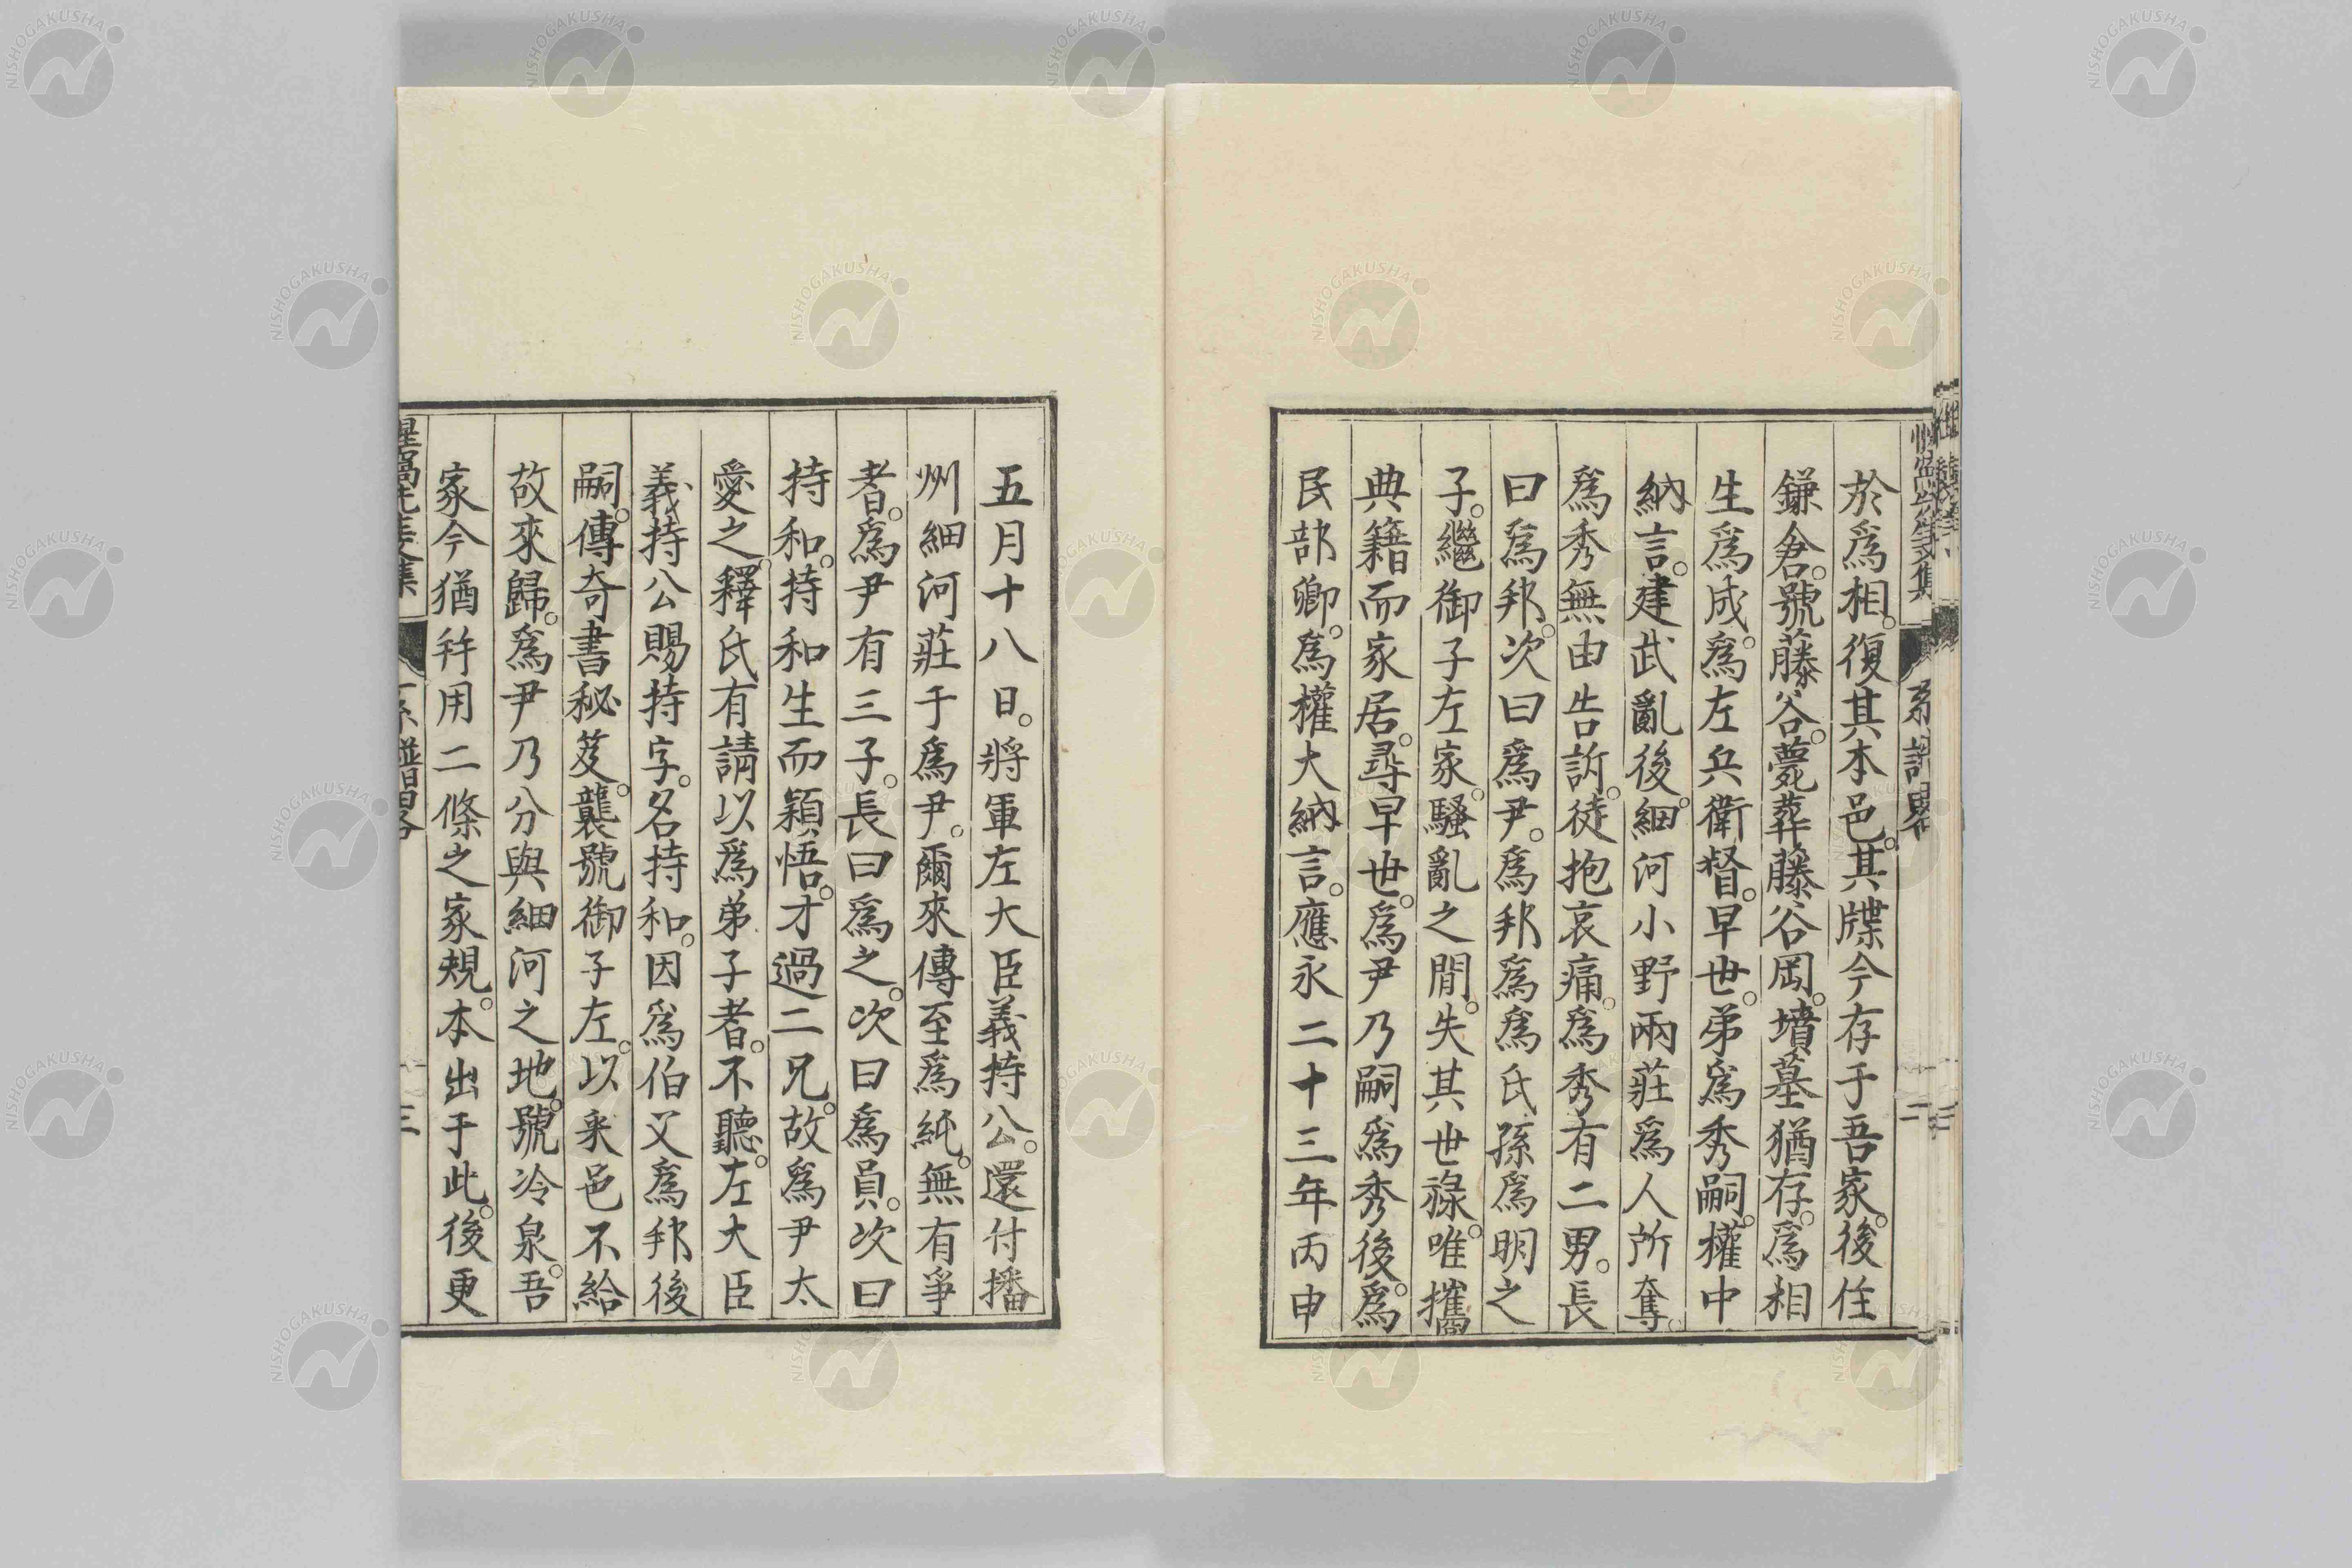 於爲相。復其本邑。其牒今存于吾家。後任
鎌倉。號藤谷。薨葬藤谷岡。墳墓猶存。爲相
生爲成。爲左兵衛督。早世。弟爲秀嗣。權中
納言。建武亂後。細河小野兩莊爲人所奪。
爲秀無由告訴。徒抱哀痛。爲秀有二男。長
曰爲邦。次曰爲尹。爲邦爲爲氏孫爲明之
子。繼御子左家。騷亂之間。失其世祿。唯攜
典籍而家居。尋早世。爲尹乃嗣爲秀後。爲
民部卿。爲權大納言。應永二十三年丙申
五月十八日。將軍左大臣義持公。還付播
州細河莊于爲尹。爾來傳至爲純。無有爭
者。爲尹有三子。長曰爲之。次曰爲員。次曰
持和。持和生而穎悟。才過二兄。故爲尹太
愛之。釋氏有請以爲弟子者。不聽。左大臣
義持公賜持字。名持和。因爲伯父爲邦後
嗣。傳奇書秘笈。襲號御子左。以釆邑不給
故來歸。爲尹乃分與細河之地。號冷泉。吾
家今猶幷用二條之家規。本出于此。後更
惺窩先生文集
系譜略
三
NISHOGAKUSHA